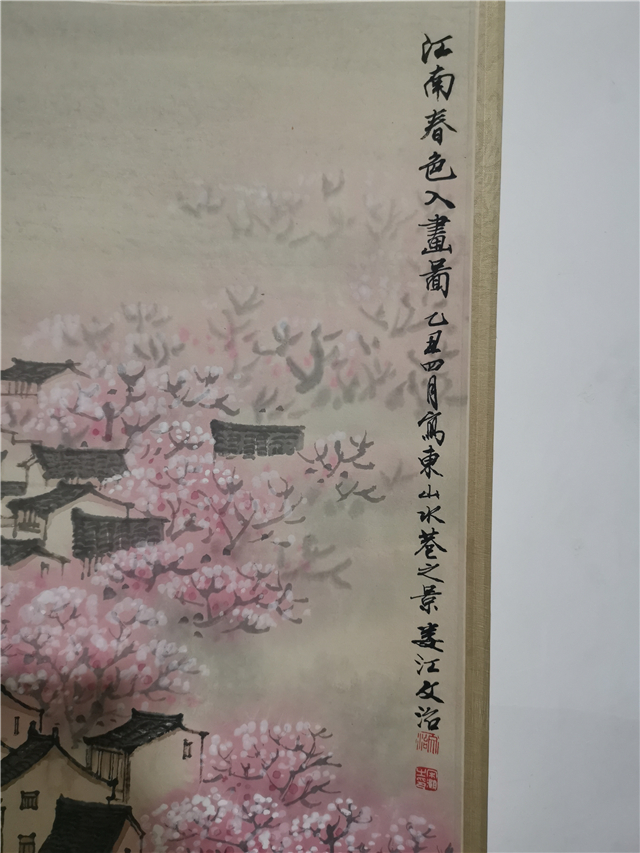 江南春色入畫啚乙丑四月寫東山水巷之景婁江文治